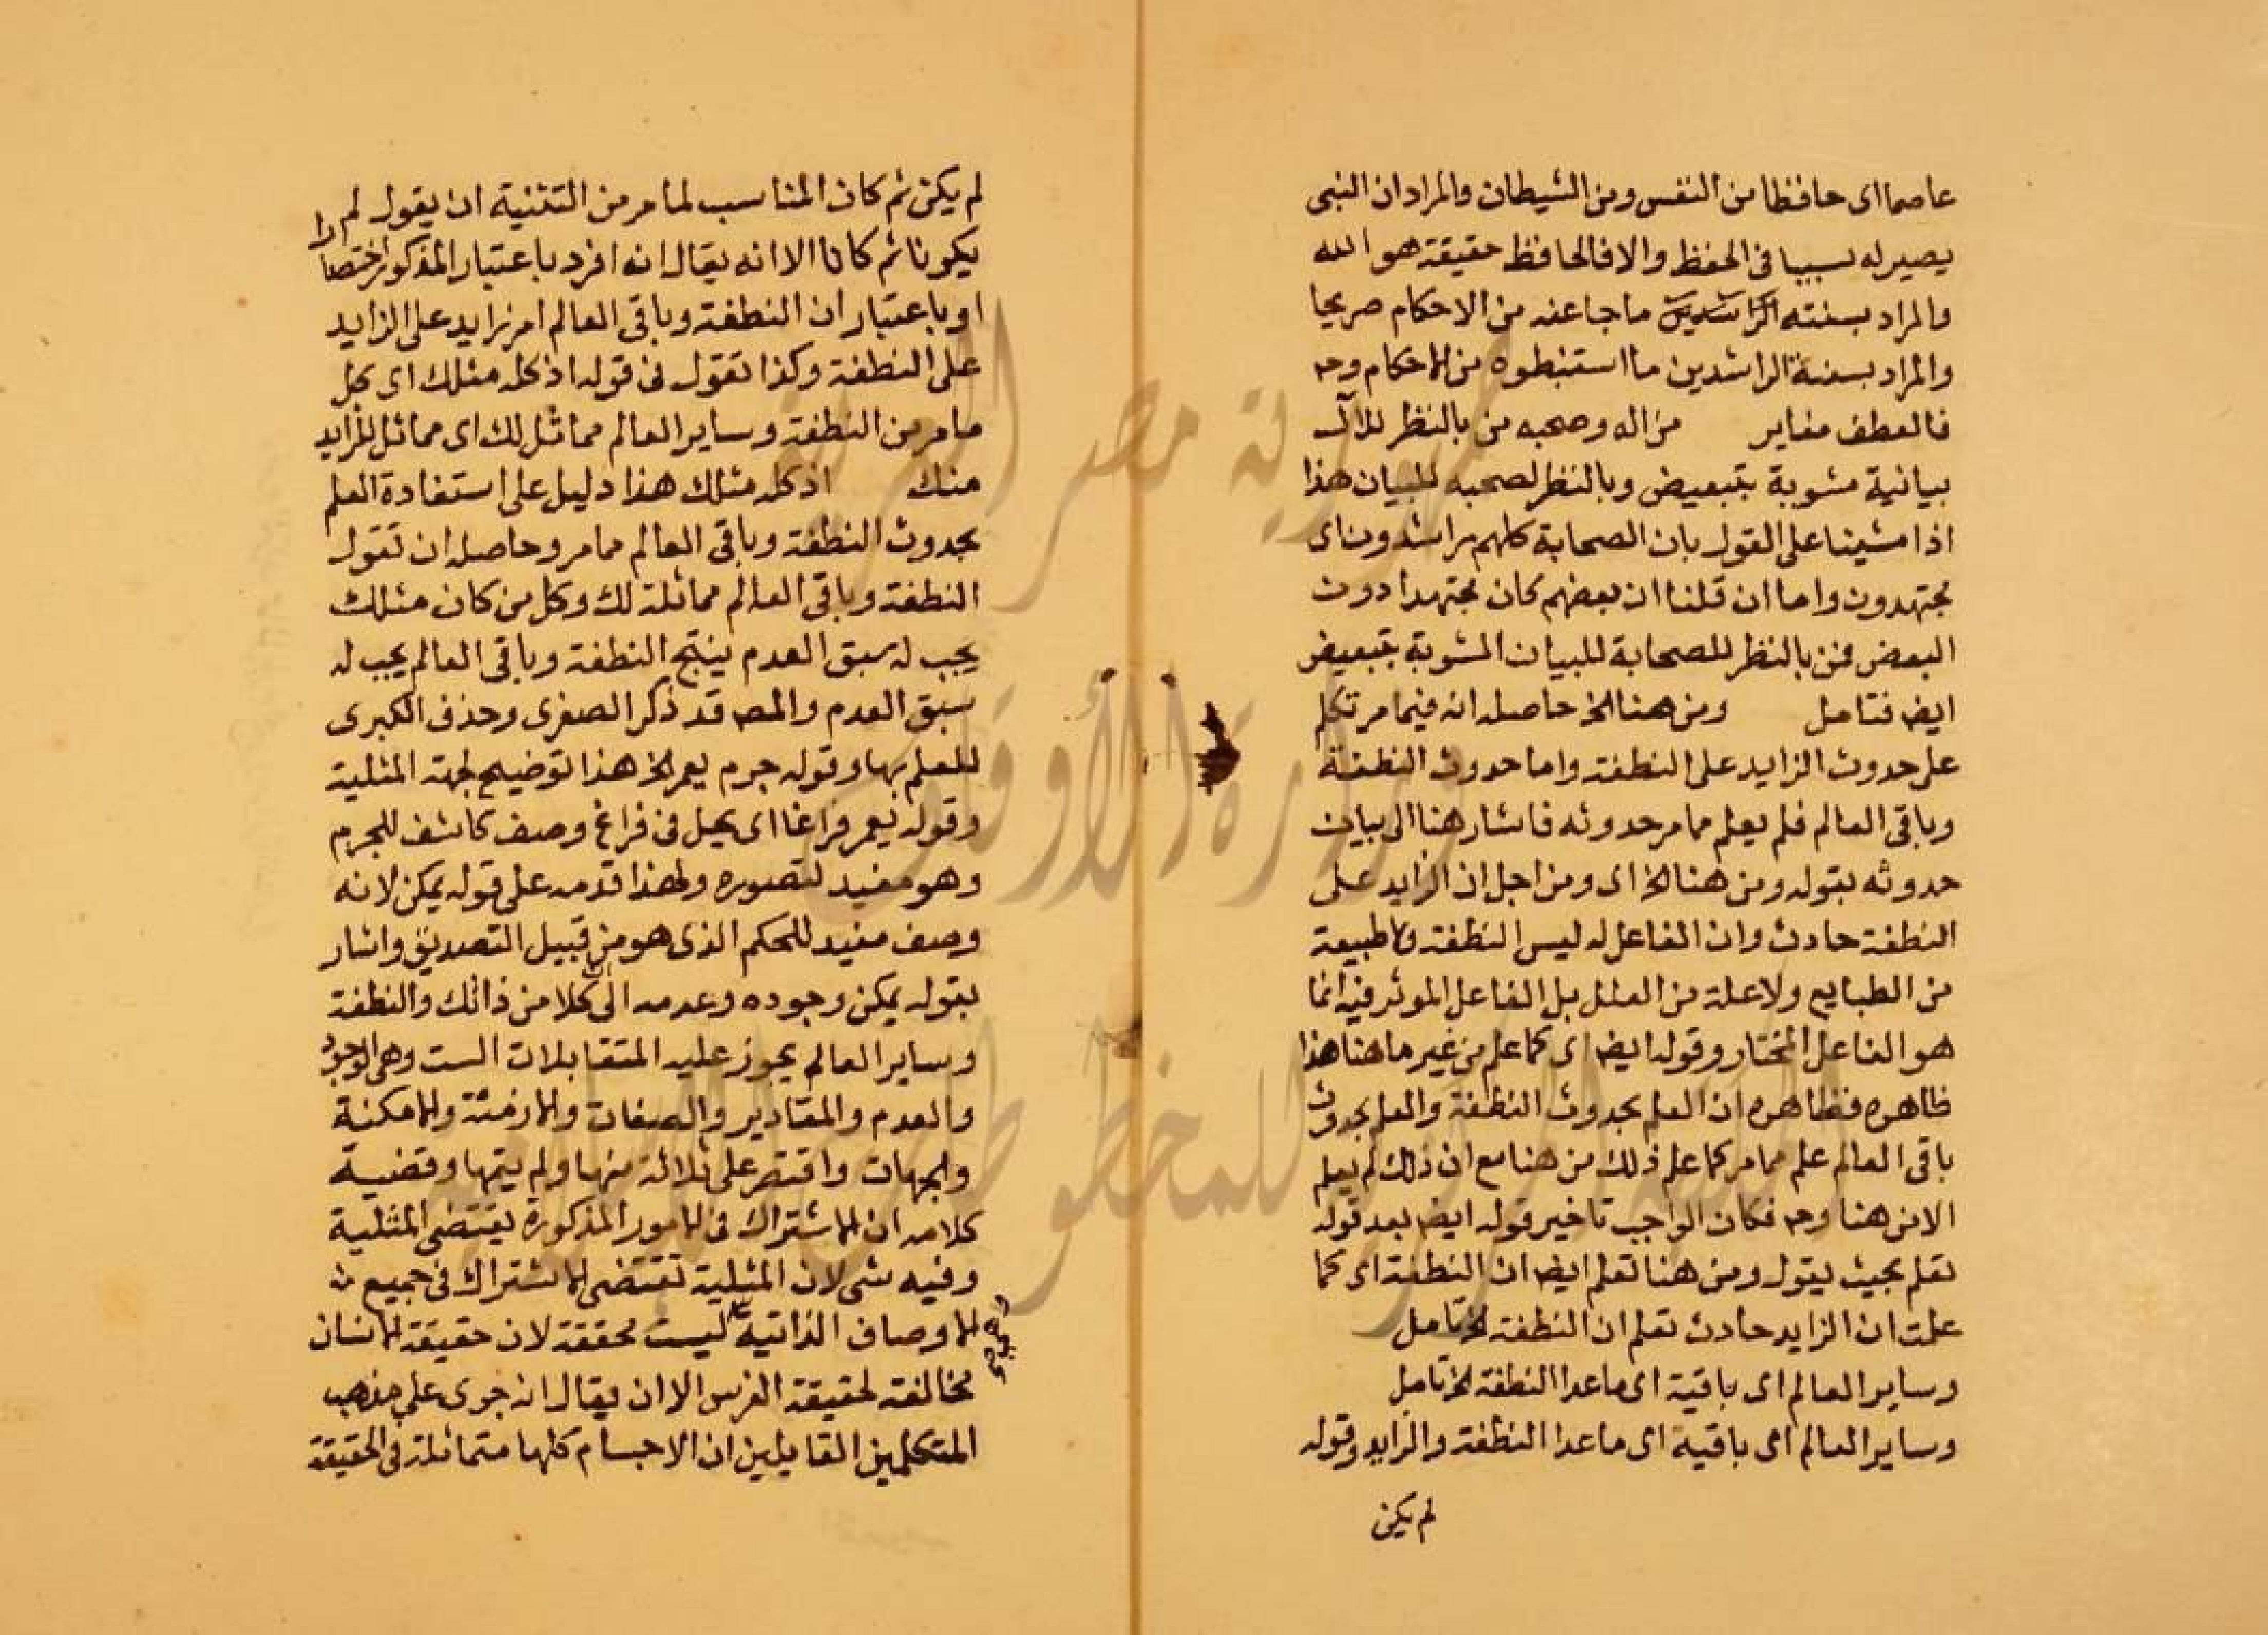 عاصما اى حافظا من النفس ومن الشيطان والمراد ان النبى
يصير له سببا فى الحفظ والا فالحافظ حقيقة هو الله
والمراد بسنته الراشدين ما جا عنه من الاحكام صريحا
والمراد بسنة الراشدين ما استنبطوه من الاحكام وحـ
فالعطف مغاير من اله وصحبه من بالنظر للآل
بيانية مشوبة بتبعيض وبالنظر لصحبه للبيان هذا
اذا مشينا على القول بان الصحابة كلهم راشدون اى
مجتهدون واما ان قلنا ان بعضهم كان مجتهدا دون
البعض فمن بالنظر للصحابة للبيان المشوبة بتبعيض
ايضا فتامل ومن هنا الخ حاصله انه فيما مر تكلم
على حدوث الزايد على النطفة واما حدوث النطفة
وباقى العالم فلم يعلم مما مر حدوثه فاشار هنا الى بيان
حدوثه بقوله ومن هنا الخ اى ومن اجل ان الزايد على
النطفة حادث وان الفاعل له ليس النطفة ولا طبيعة
من الطبايع ولا علة من العلل بل الفاعل الموثر فيه انما
هو الفاعل المختار وقوله ايضا اى كما علم من غير ما هنا هذا
ظاهره فظاهره ان العلم بحدوث النطفة والعلم بحدوث
باقى العالم علم مما مر كما علم ذلك من هنا مع ان ذلك لم يعلم
الا من هنا وحـ فكان الواجب تاخير قوله ايضا بعد قوله
تعلم بحيث يقول ومن هنا تعلم ايضا ان النطفة اى كما
علمت ان الزايد حادث تعلم ان النطفة الخ تامل
وساير العالم اى باقية اى ما عدا النطفة الخ تامل
وساير العالم اى باقيه اى ما عدا النطفة والزايد وقوله
لم يكن
لم يكن ثم كان المناسب لما مر من التثنية ان يقول لم
يكونا ثم كانا الا انه يقال انه افرد باعتبار المذكور اختصارا
او باعتبار ان النطفة وباقى العالم امر زايد على الزايد
على النطفة وكذا تقول فى قوله اذ كله مثلك اى كل
ما مر من النطفة وساير العالم مماثل لك اى مماثل للزايد
منك اذ كله مثلك هذا دليل على استفادة العلم
بحدوث النطفة وباقى العالم مما مر وحاصله ان تقول
النطفة وباقى العالم مماثلة لك وكل من كان مثلك
يجب له سبق العدم ينتج النطفة وباقى العالم يجب له
سبق العدم والمصـ قد ذكر الصغرى وحذف الكبرى
للعلم بها وقوله جرم يعمر الخ هذا توضيح لجهة المثلية
وقوله يعمر فراغا اى يحل فى فراغ وصف كاشف للجرم
وهو مفيد لتصوره ولهذا قدمه على قوله يمكن لانه
وصف مفيد للحكم الذى هو من قبيل التصديق واشار
بقوله يمكن وجوده وعدمه الى كلا من ذاتك والنطفة
وساير العالم يجوز عليه المتقابلات الست وهى الوجود
والعدم والمقادير والصفات والازمنة والامكنة
والجهات واقتصر على ثلاثة منها ولم يتمها وقضية
كلامه ان الاشتراك فى الامور المذكورة يقتضى المثلية
وفيه شى لان المثلية تقتضى الاشتراك فى جميع
الاوصاف الذاتية ليست محققة لان حقيقة الانسان
مخالفة لحقيقة الفرس الا ان يقال انه جرى على مذهب
المتكلمين القايلين ان الاجسام كلها متماثلة فى الحقيقة